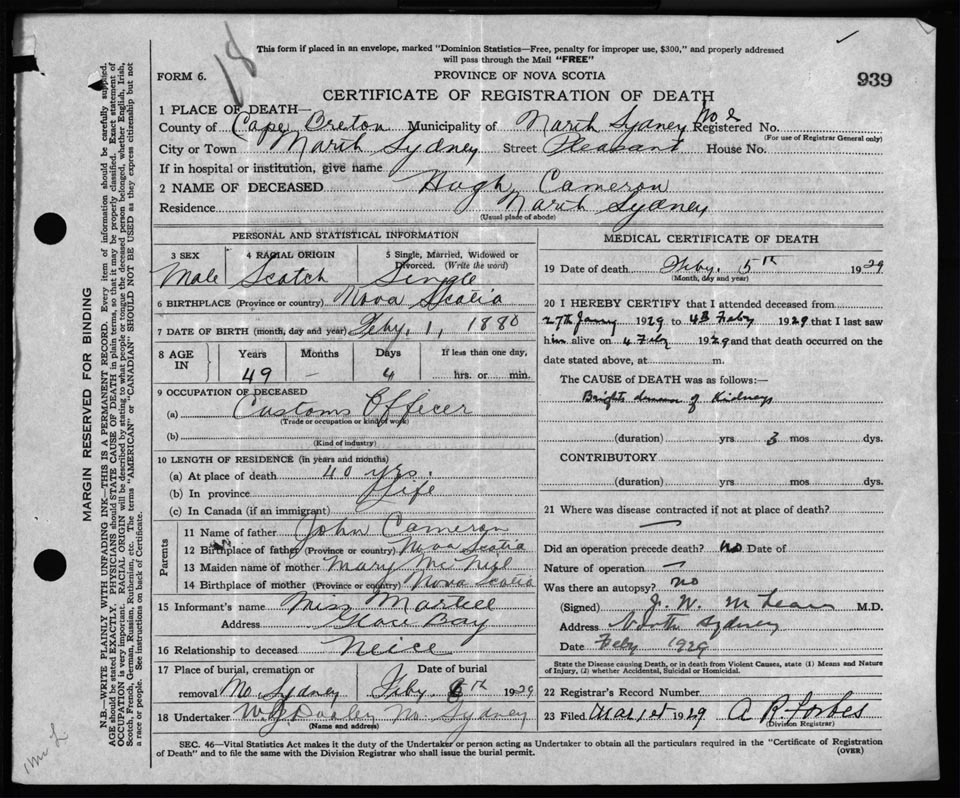 18
This form if placed in an envelope, marked "Dominion Statistics—Free, penalty for improper use, $300," and properly addressed
will pass through the Mail "FREE"
FORM 6.
PROVINCE OF NOVA SCOTIA
939
CERTIFICATE OF REGISTRATION OF DEATH
1 PLACE OF DEATH—
County of Cape Breton Municipality of North Sydney Registered No.
(For use of Registrar General only)
City or Town North Sydney Street Pleasant House No.
If in hospital or institution, give name
2 NAME OF DECEASED Hugh Cameron
Residence North Sydney
(Usual place of abode)
PERSONAL AND STATISTICAL INFORMATION
3 SEX 4 RACIAL ORIGIN 5 Single, Married, Widowed or
Divorced. (Write the word)
Male Scotch Single
6 BIRTHPLACE (Province or country) Nova Scotia
7 DATE OF BIRTH (month, day and year) Feby. 1, 1880
8 AGE IN Years Months Days If less than one day,
49 – 4 hrs. or min.
9 OCCUPATION OF DECEASED
(a) Customs Officer
(Trade or occupation or kind of work)
(b)
(Kind of industry)
10 LENGTH OF RESIDENCE (in years and months)
(a) At place of death 40 yrs.
(b) In province Life
(c) In Canada (if an immigrant)
Parents
11 Name of father John Cameron
12 Birthplace of father (Province or country) Nova Scotia
13 Maiden name of mother Mary McNeil
14 Birthplace of mother (Province or country) Nova Scotia
15 Informant's name Miss
Address Glace Bay
16 Relationship to deceased Neice
17 Place of burial, cremation or Date of burial
removal No. Sydney Feby th 1929
18 Undertaker No. Sydney
(Name and address)
MEDICAL CERTIFICATE OF DEATH
19 Date of death Feby. 5th 1929
(Month, day and year)
20 I HEREBY CERTIFY that I attended deceased from
27th 1929 to 1929 that I last saw
him alive on 4 1929 and that death occurred on the
date stated above, at m.
The CAUSE of DEATH was as follows:—
Brights disease of Kidneys
(duration) yrs 3 mos dys.
CONTRIBUTORY
(duration) yrs. mos. dys.
21 Where was disease contracted if not at place of death?
Did an operation precede death? no Date of
Nature of operation –
Was there an autopsy? no
(Signed) J. W. McLean M.D.
Address North Sydney
Date Feby 1929
State the Disease causing Death, or in death from Violent Causes, state (1) Means and Nature
of Injury, (2) whether Accidental, Suicidal or Homicidal.
22 Registrar's Record Number
23 Filed Mar 1st 1929 A R. Forbes
(Division Registrar)
SEC. 46—Vital Statistics Act makes it the duty of the Undertaker or person acting as Undertaker to obtain all the particulars required in the "Certificate of Registration
of Death" and to file the same with the Division Registrar who shall issue the burial permit.
(OVER)
MARGIN RESERVED FOR BINDING
N.B.—WRITE PLAINLY WITH UNFADING INK—THIS IS A PERMANENT RECORD. Every item of information should be carefully supplied.
AGE should be stated EXACTLY. PHYSICIANS should STATE CAUSE OF DEATH in plain terms, so that it may be properly classified. Exact statement of
OCCUPATION is very important. RACIAL ORIGIN will be described by stating to what people or tongue the deceased person belonged, whether English, Irish,
Scotch, French, German, Russian, Ruthenian, etc. The terms "AMERICAN" or "CANADIAN" SHOULD NOT BE USED as they express citizenship but not
a race or people. See instructions on back of Certificate.